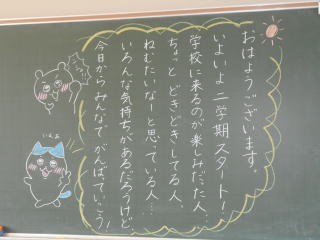 おはようございます。
いよいよ二学期スタート!
学校に来るのが楽しみだった人…
ちょっと どきどきしてる人。
ねむたいなーと思っている人…
いろんな気持ちがあるだろうけど、
今日から みんなで がんばっていこう!